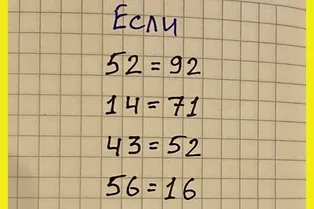 Если
52=92
14=71
43=52
56=16